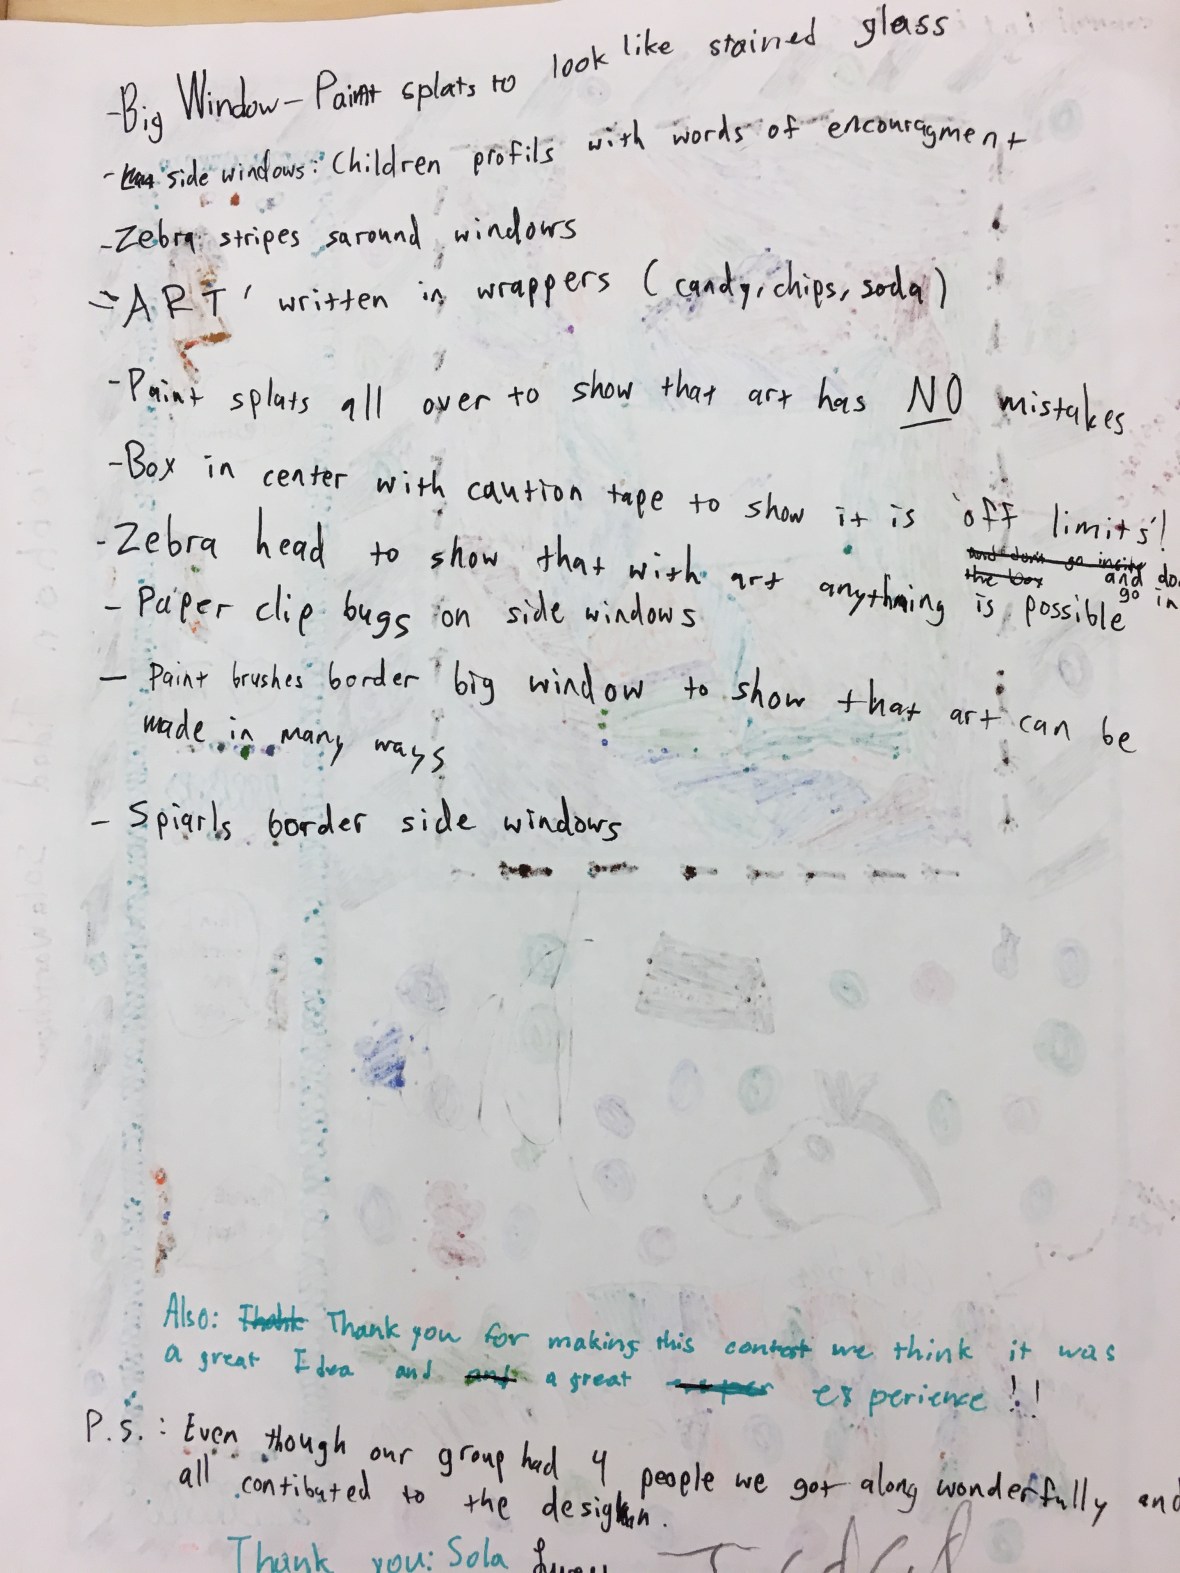 -Big Window - Paint splats to look like stained glass
- side windows: Children profils with words of encouragment
-Zebra stripes saround windows
-'ART' written in wrappers (candy, chips, soda)
-Paint splats all over to show that art has NO mistakes
-Box in center with caution tape to show it is 'off limits'!
and dont go inside the box
and do
go in
-Zebra head to show that with art anything is possible
- Paper clip bugs on side windows
- Paint brushes border big window to show that art can be
made in many ways
- Spiarls border side windows
Also: Thank you for making this contest we think it was
a great Idea and a great experience!!
P.S.: Even though our group had 4 people we got along wonderfully and
all contibuted to the design.
Thank you: Sola